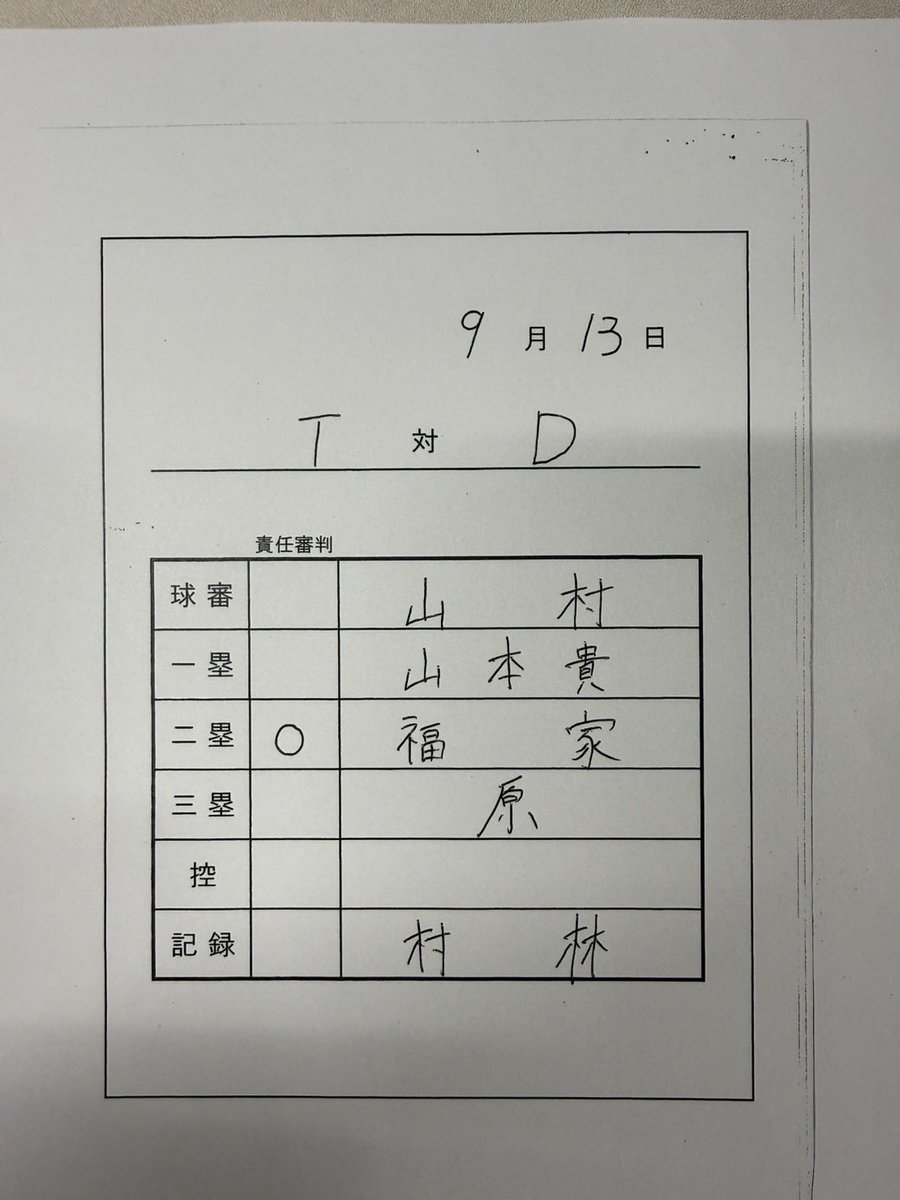 9月13日
T 対 D
責任審判
球審 山村
一塁 山本貴
二塁 ○ 福家
三塁 原
控
記録 村林